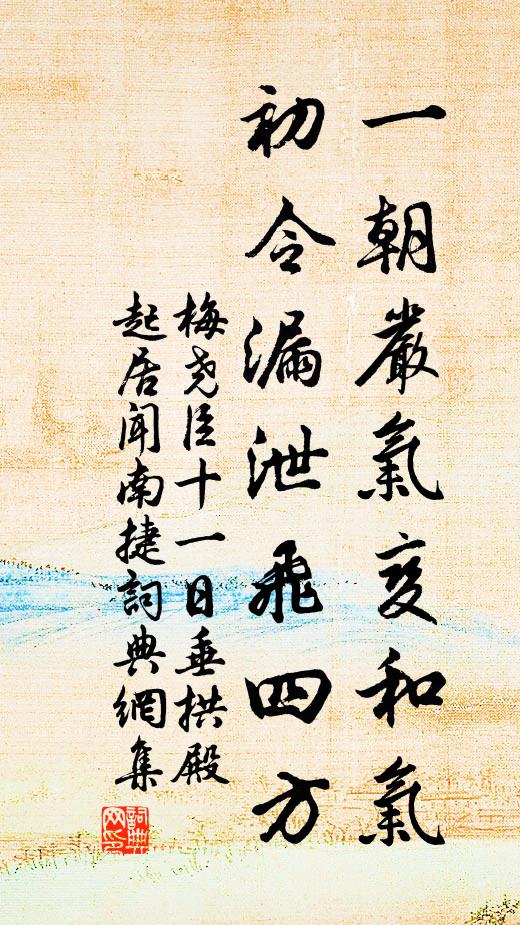 一朝嚴氣变和氣
初令漏泄飛四方
梅尧臣十一日垂拱殿
起居闻南捷詞典網集
詞典网印